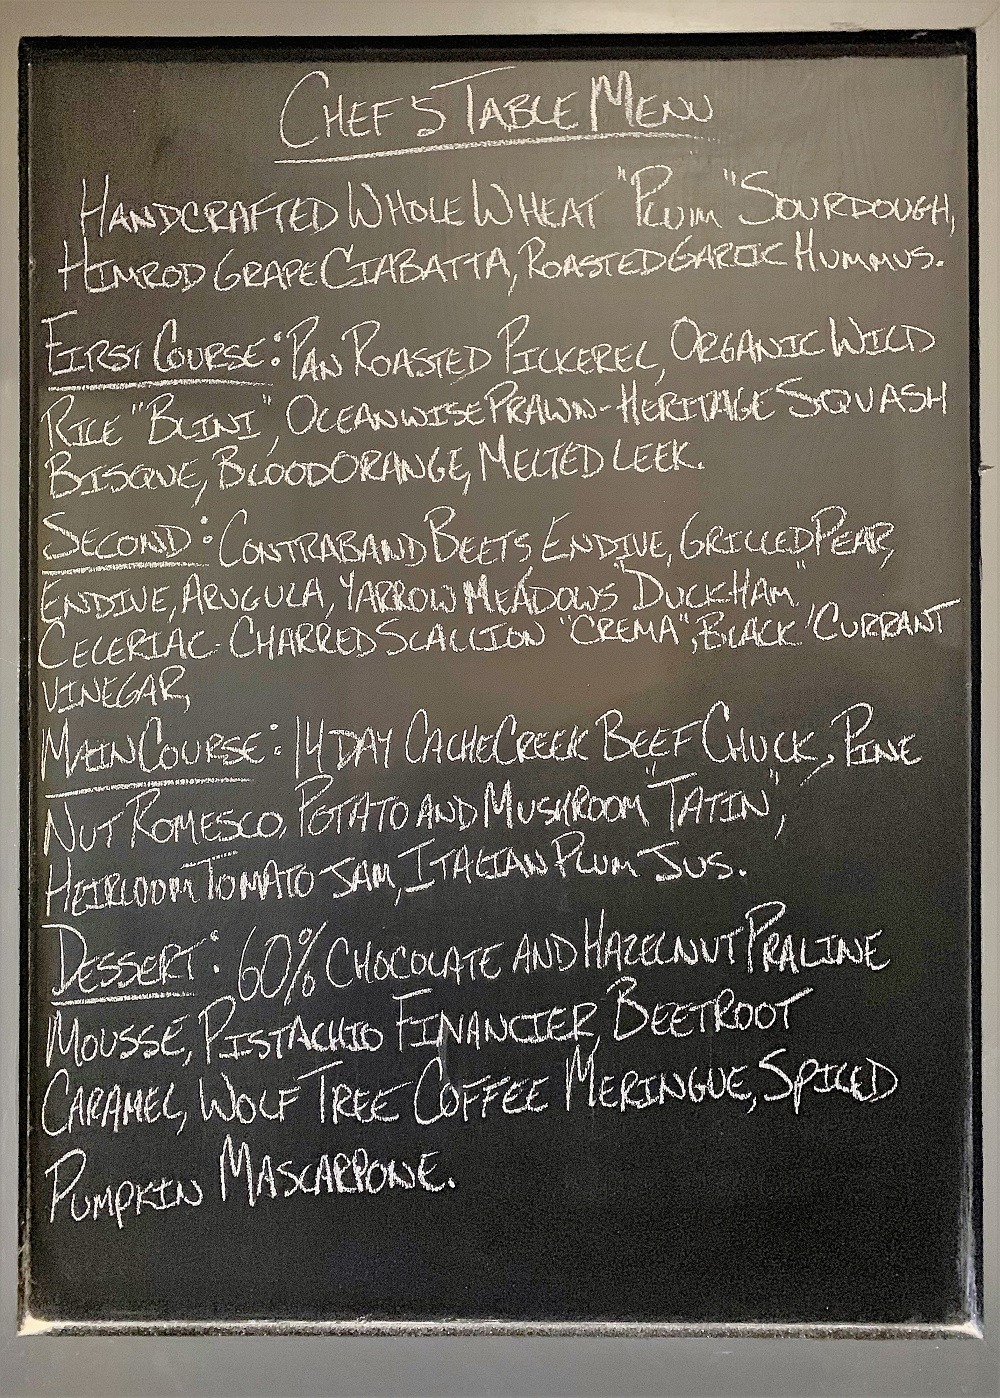 CHEF'S TABLE MENU
HANDCRAFTED WHOLE WHEAT "PLUM" SOURDOUGH,
HIMROD GRAPE CIABATTA, ROASTED GARLIC HUMMUS.
FIRST COURSE: PAN ROASTED PICKEREL, ORGANIC WILD
RICE "BLINI", OCEANWISE PRAWN-HERITAGE SQUASH
BISQUE, BLOOD ORANGE, MELTED LEEK.
SECOND: CONTRABAND BEETS, ENDIVE, GRILLED PEAR,
ENDIVE, ARUGULA, YARROW MEADOWS "DUCK HAM"
CELERIAC- CHARRED SCALLION "CREMA", BLACK CURRANT
VINEGAR,
MAIN COURSE: 14 DAY CACHE CREEK BEEF CHUCK, PINE
NUT ROMESCO, POTATO AND MUSHROOM "TATIN",
HEIRLOOM TOMATO JAM, ITALIAN PLUM JUS.
DESSERT: 60% CHOCOLATE AND HAZELNUT PRALINE
MOUSSE, PISTACHIO FINANCIER, BEETROOT
CARAMEL, WOLF TREE COFFEE MERINGUE, SPICED
PUMPKIN MASCARPONE.